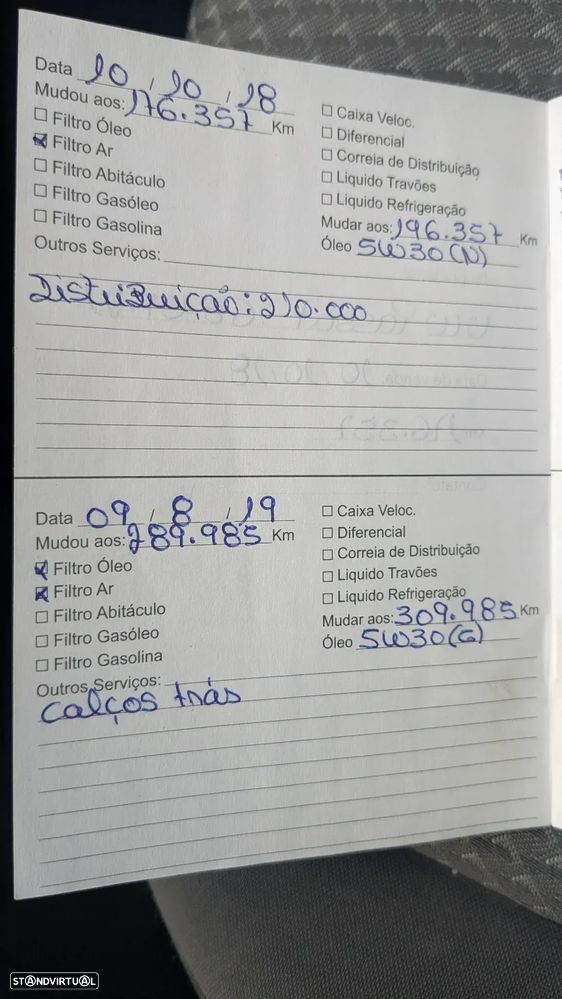 Data 10 / 10 / 18
Mudou aos: 176.357 Km
Filtro Óleo
Filtro Ar
Filtro Abitáculo
Filtro Gasóleo
Filtro Gasolina
Outros Serviços:
Caixa Veloc.
Diferencial
Correia de Distribuição
Liquido Travões
Liquido Refrigeração
Mudar aos: 196.357 Km
Óleo 5W30 (N)
Distribuição: 210.000
Data 09 / 8 / 19
Mudou aos: 289.985 Km
Filtro Óleo
Filtro Ar
Filtro Abitáculo
Filtro Gasóleo
Filtro Gasolina
Outros Serviços:
Caixa Veloc.
Diferencial
Correia de Distribuição
Liquido Travões
Liquido Refrigeração
Mudar aos: 309.985 Km
Óleo 5W30 (G)
Calços trás
STANDVIRTUAL